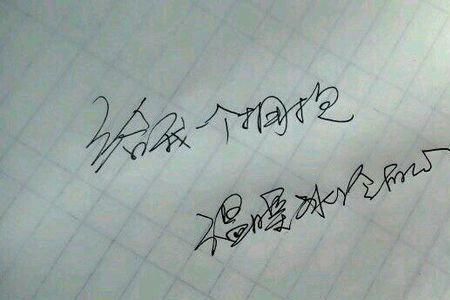 给我个拥抱
温暖冰冷的心